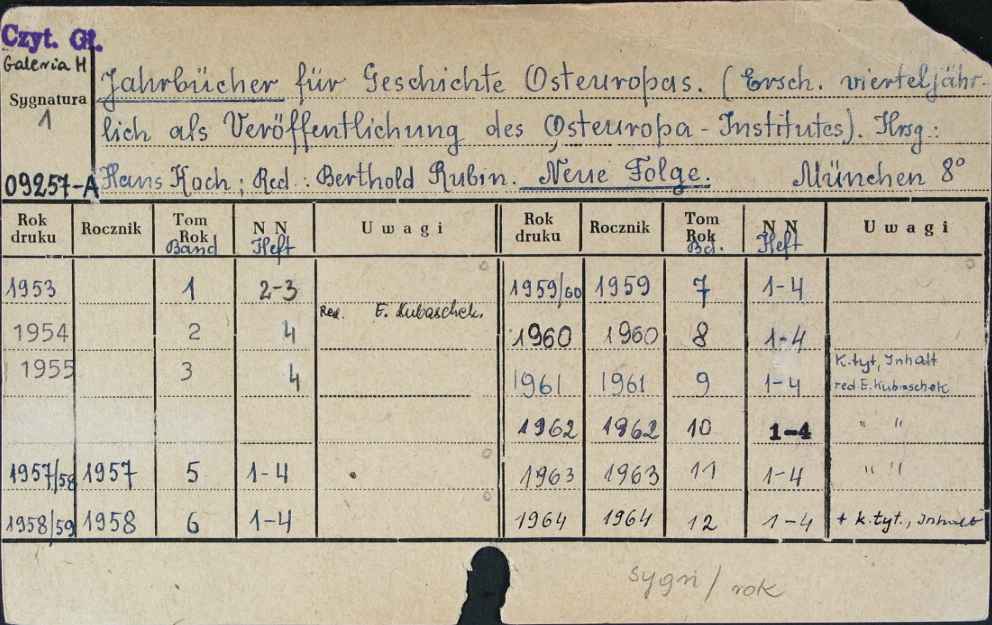 Czyt. Gł.
Galeria H
Sygnatura
1
09257-A
Jahrbücher für Geschichte Osteuropas. (Ersch. vierteljähr-
lich als Veröffentlichung des Osteuropa-Institutes). Hrsg.:
Hans Koch; Red.: Berthold Rubin. Neue Folge. München 8°
Rok druku Rocznik Tom Rok Band N N Heft Uwagi Rok druku Rocznik Tom Rok Bd. N N Heft Uwagi
1953 1 2-3 1959/60 1959 7 1-4
Red. E. Kubaschek.
1954 2 4 1960 1960 8 1-4
1955 3 4 1961 1961 9 1-4 K.tyt, Inhalt
red E. Kubaschek
1962 1962 10 1-4 " "
1957/58 1957 5 1-4 1963 1963 11 1-4 " "
1958/59 1958 6 1-4 1964 1964 12 1-4 + k.tyt., Inhalt
sygn/rok